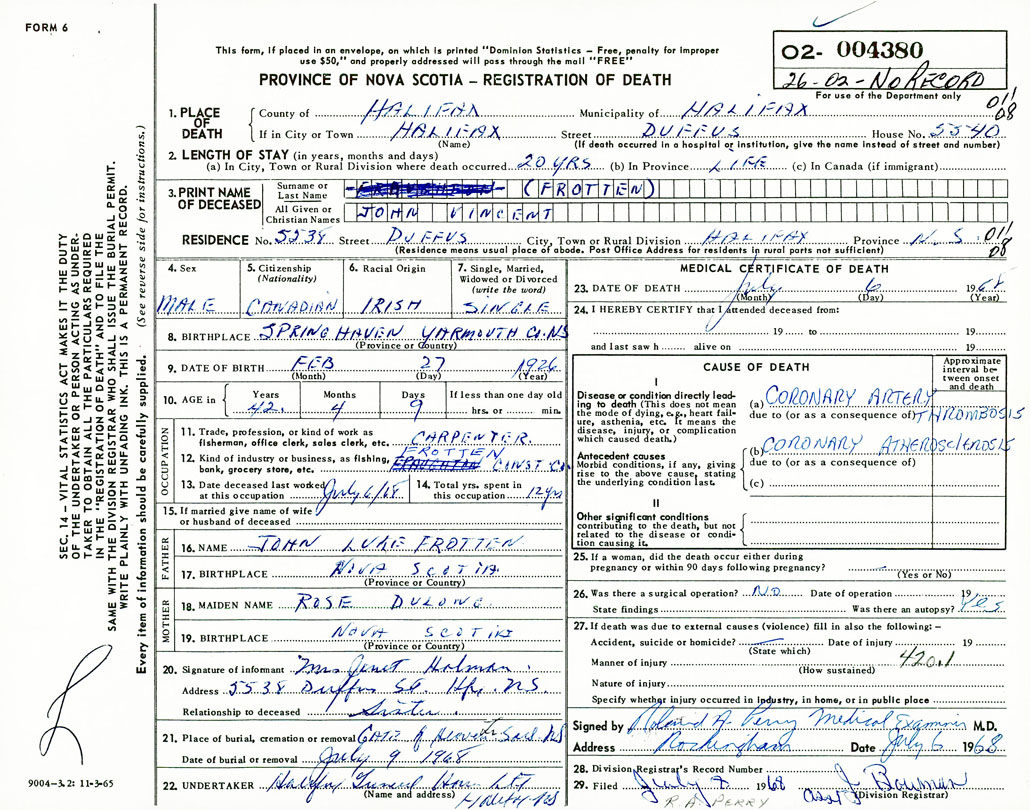 FORM 6
This form, if placed in an envelope, on which is printed "Dominion Statistics – Free, penalty for improper
use $50," and properly addressed will pass through the mail "FREE"
PROVINCE OF NOVA SCOTIA – REGISTRATION OF DEATH
02- 004380
26-02-No RECORD
For use of the Department only
011
08
1. PLACE OF DEATH
County of HALIFAX Municipality of HALIFAX
If in City or Town HALIFAX Street DUFFUS House No. 5540
(Name) (If death occurred in a hospital or institution, give the name instead of street and number)
2. LENGTH OF STAY (in years, months and days)
(a) In City, Town or Rural Division where death occurred 20 YRS (b) In Province LIFE (c) In Canada (if immigrant)
3. PRINT NAME OF DECEASED
Surname or Last Name (FROTTEN)
All Given or Christian Names JOHN VINCENT
RESIDENCE No. 5538 Street DUFFUS City, Town or Rural Division HALIFAX Province N.S 011
08
(Residence means usual place of abode. Post Office Address for residents in rural parts not sufficient)
4. Sex
MALE
5. Citizenship
(Nationality)
CANADIAN
6. Racial Origin
IRISH
7. Single, Married,
Widowed or Divorced
(write the word)
SINGLE
8. BIRTHPLACE SPRINGHAVEN YARMOUTH Co. NS
(Province or Country)
9. DATE OF BIRTH FEB 27 1926
(Month) (Day) (Year)
10. AGE in
Years Months Days If less than one day old
42. 4 9 hrs. or min.
OCCUPATION
11. Trade, profession, or kind of work as
fisherman, office clerk, sales clerk, etc. CARPENTER.
12. Kind of industry or business, as fishing, FROTTEN
bank, grocery store, etc. CONST Co.
13. Date deceased last worked
at this occupation July 6/68
14. Total yrs. spent in
this occupation 12 yrs
15. If married give name of wife
or husband of deceased
FATHER
16. NAME JOHN LUKE FROTTEN
17. BIRTHPLACE NOVA SCOTIA.
(Province or Country)
MOTHER
18. MAIDEN NAME ROSE
19. BIRTHPLACE NOVA SCOTIA
(Province or Country)
20. Signature of informant Mrs Janet Holman.
Address 5538 Duffus St. Hfx. NS
Relationship to deceased Sister.
21. Place of burial, cremation or removal NS
Date of burial or removal July 9 1968
22. UNDERTAKER Halifax Funeral Home Ltd
(Name and address) Halifax NS
MEDICAL CERTIFICATE OF DEATH
23. DATE OF DEATH July 6 1968
(Month) (Day) (Year)
24. I HEREBY CERTIFY that I attended deceased from:
19 to 19
and last saw h alive on 19
CAUSE OF DEATH
Approximate
interval be-
tween onset
and death
I
Disease or condition directly lead-
ing to death (This does not mean
the mode of dying, e.g., heart fail-
ure, asthenia, etc. It means the
disease, injury, or complication
which caused death.)
(a) CORONARY ARTERY
due to (or as a consequence of) THROMBOSIS
Antecedent causes
Morbid conditions, if any, giving
rise to the above cause, stating
the underlying condition last.
(b) CORONARY ATHEROSCLEROSIS
due to (or as a consequence of)
(c)
II
Other significant conditions
contributing to the death, but not
related to the disease or condi-
tion causing it.
25. If a woman, did the death occur either during
pregnancy or within 90 days following pregnancy?
(Yes or No)
26. Was there a surgical operation? NO Date of operation 19
State findings Was there an autopsy? Yes
27. If death was due to external causes (violence) fill in also the following:–
Accident, suicide or homicide? Date of injury 19
(State which)
Manner of injury 420.1
(How sustained)
Nature of injury
Specify whether injury occurred in industry, in home, or in public place
Signed by Roland A Perry Medical Examiner M.D.
Address Rockingham Date July 6 1968
28. Division Registrar's Record Number
29. Filed July 8 1968 Ass't J. Bowman
(Division Registrar)
R.A. PERRY
SEC. 14 – VITAL STATISTICS ACT MAKES IT THE DUTY
OF THE UNDERTAKER OR PERSON ACTING AS UNDER-
TAKER TO OBTAIN ALL THE PARTICULARS REQUIRED
IN THE "REGISTRATION OF DEATH" AND TO FILE THE
SAME WITH THE DIVISION REGISTRAR WHO SHALL ISSUE THE BURIAL PERMIT.
WRITE PLAINLY WITH UNFADING INK. THIS IS A PERMANENT RECORD.
Every item of information should be carefully supplied. (See reverse side for instructions.)
9004-3.2: 11-3-65